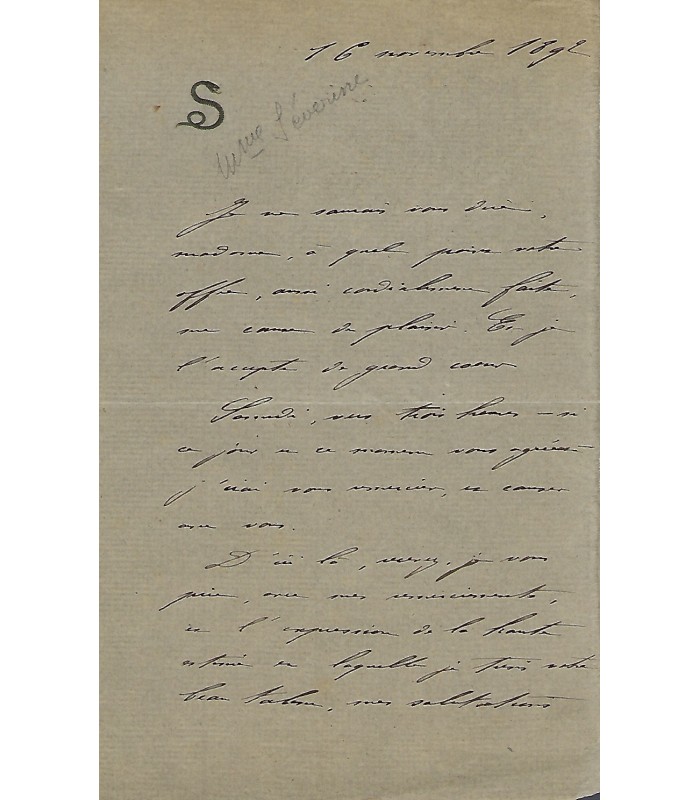 16 novembre 1892
S
Mme Séverine
Je ne saurais vous dire,
madame, à quel point votre
offre, aussi cordialement faite,
me cause de plaisir. Et je
l'accepte de grand cœur
Samedi, vers trois heures – si
ce jour et ce moment vous agréent –
j'irai vous remercier, et causer
avec vous.
D'ici là, recevez, je vous
prie, avec mes remerciements,
et l'expression de la haute
estime en laquelle je tiens votre
beau talent, mes salutations